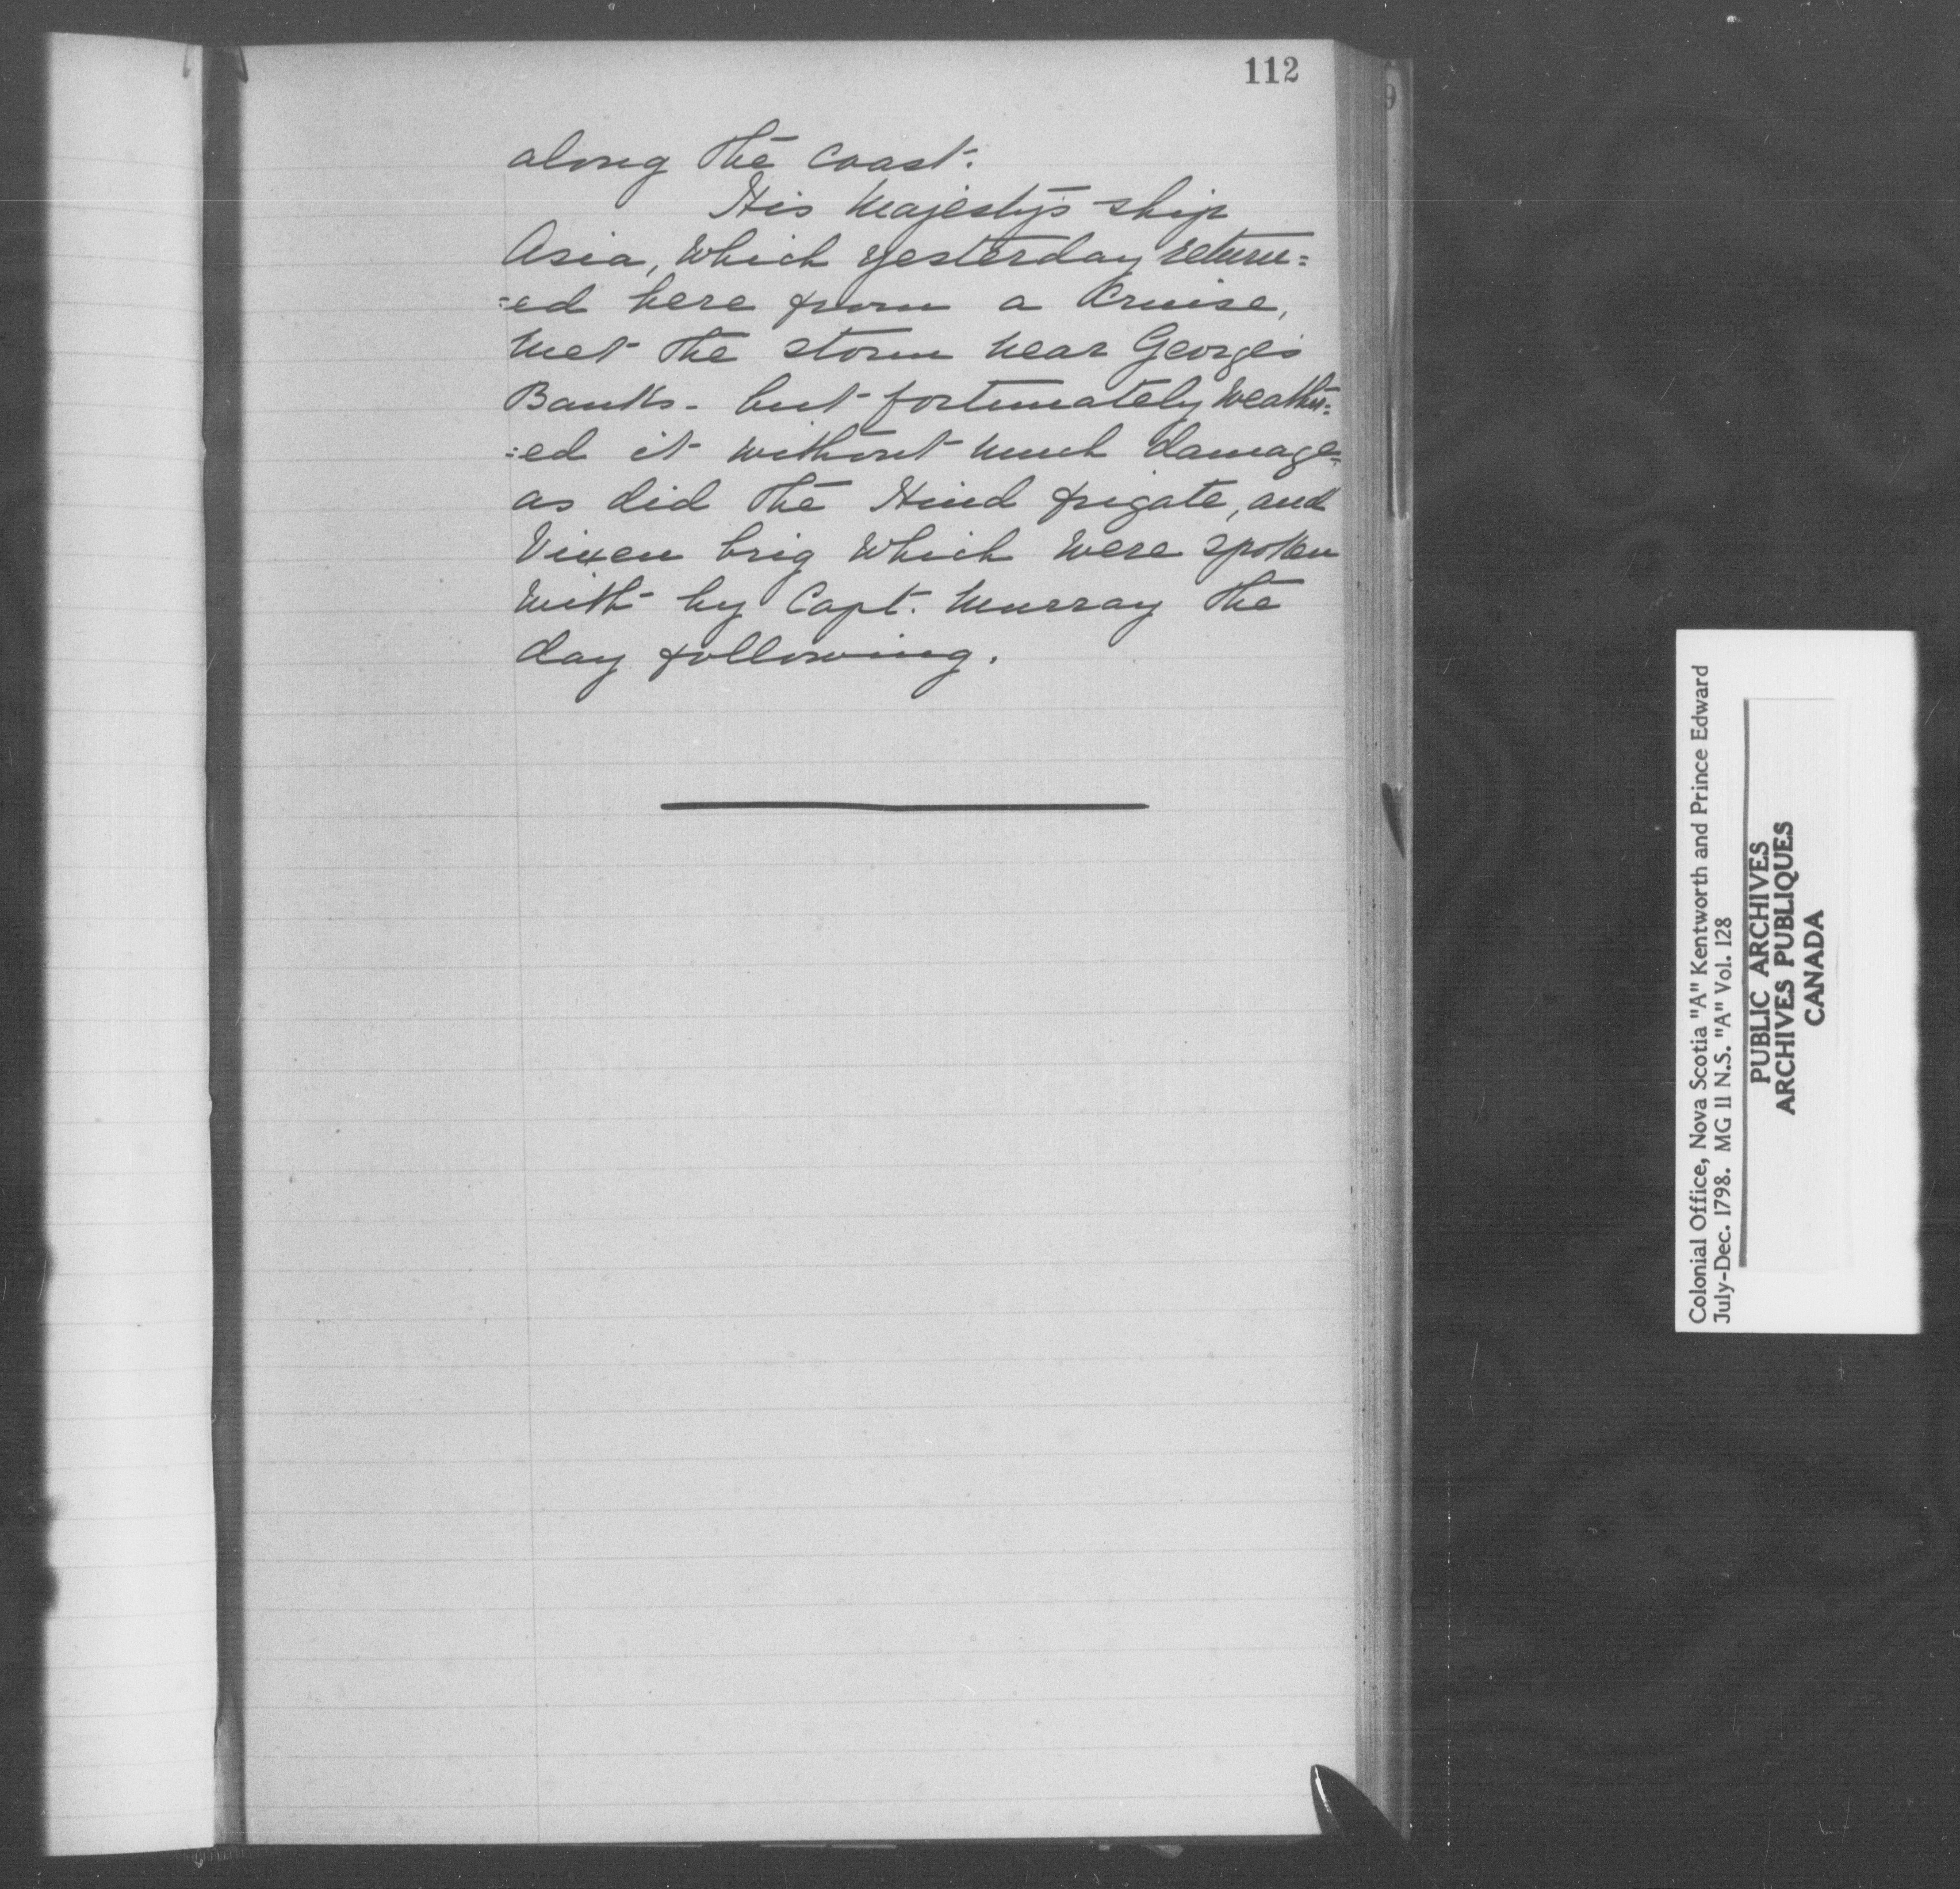 112
along the coast.
His Majesty's ship
Asia, which yesterday return=
=ed here from a cruise,
met the storm near George's
Banks - but fortunately weather=
=ed it without much damage,
as did the Hind frigate, and
Vixen brig which were spoken
with by Capt. Murray the
day following.
9
Colonial Office, Nova Scotia "A" Kentworth and Prince Edward
July-Dec. 1798. MG 11 N.S. "A" Vol. 128
PUBLIC ARCHIVES
ARCHIVES PUBLIQUES
CANADA